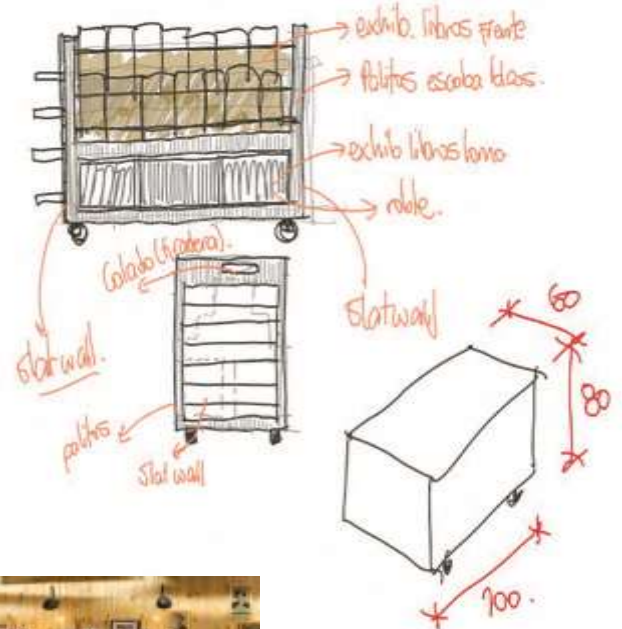 exhib. libros frente
Palitos escoba blcos.
exhib libros lomo
roble.
Calado (tiradera).
Slatwall
Slatwall.
palitos
Slat wall
60
80
100.